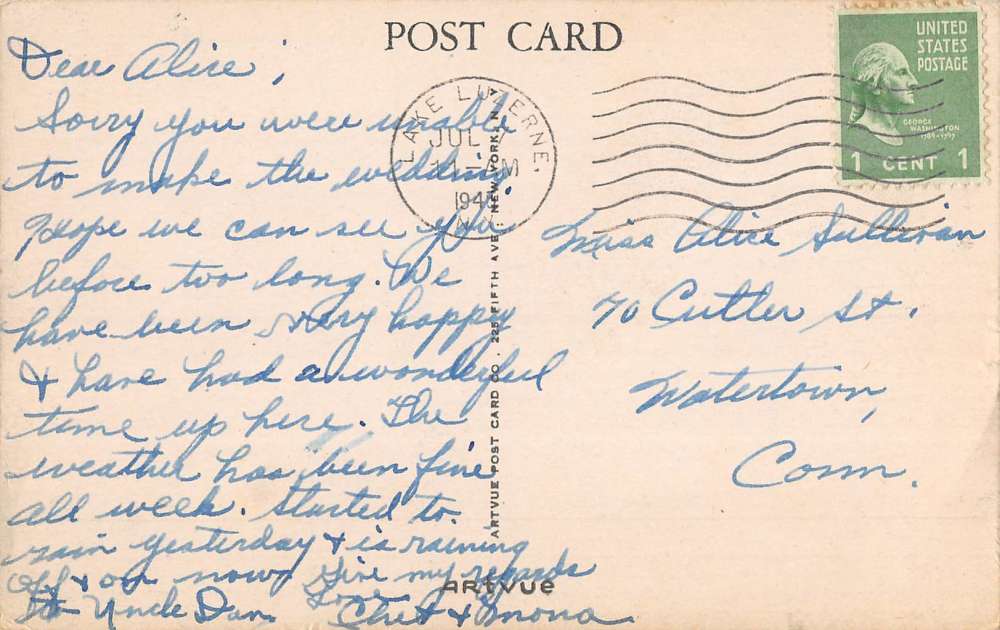 POST CARD
Dear Alice,
Sorry you were unable
to make the wedding.
Hope we can see you
before too long. We
have been very happy
& have had a wonderful
time up here. The
weather has been fine
all week. Started to
rain yesterday & is raining
off & on now. Give my regards
to Uncle Dan.
Love
Chet & Mona
LAKE LUZERNE.
JUL
M
194
N.Y.
UNITED
STATES
POSTAGE
GEORGE
WASHINGTON
1789-1797
1 CENT 1
Miss Alice Sullivan
70 Cutler St.
Watertown,
Conn.
ARTVUE POST CARD CO. 225 FIFTH AVE. NEW YORK, N.Y.
ARTVUE